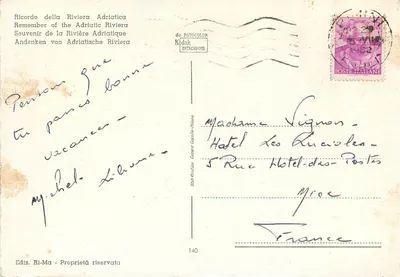 Ricordo della Riviera Adriatica
Remember of the Adriatic Riviera
Souvenir de la Rivière Adriatique
Andenken von Adriatische Riviera
da FOTOCOLOR
Kodak
EKTACHROME
POSTE ITALIANE
Pensons que
tu passes bonne
vacances -
Michel. Liliane -
Madame Vignon -
Hotel Les Lucioles -
5 Rue Hotel-des-Postes
Nice
France
Ediz. Ri-Ma - Proprietà riservata
140